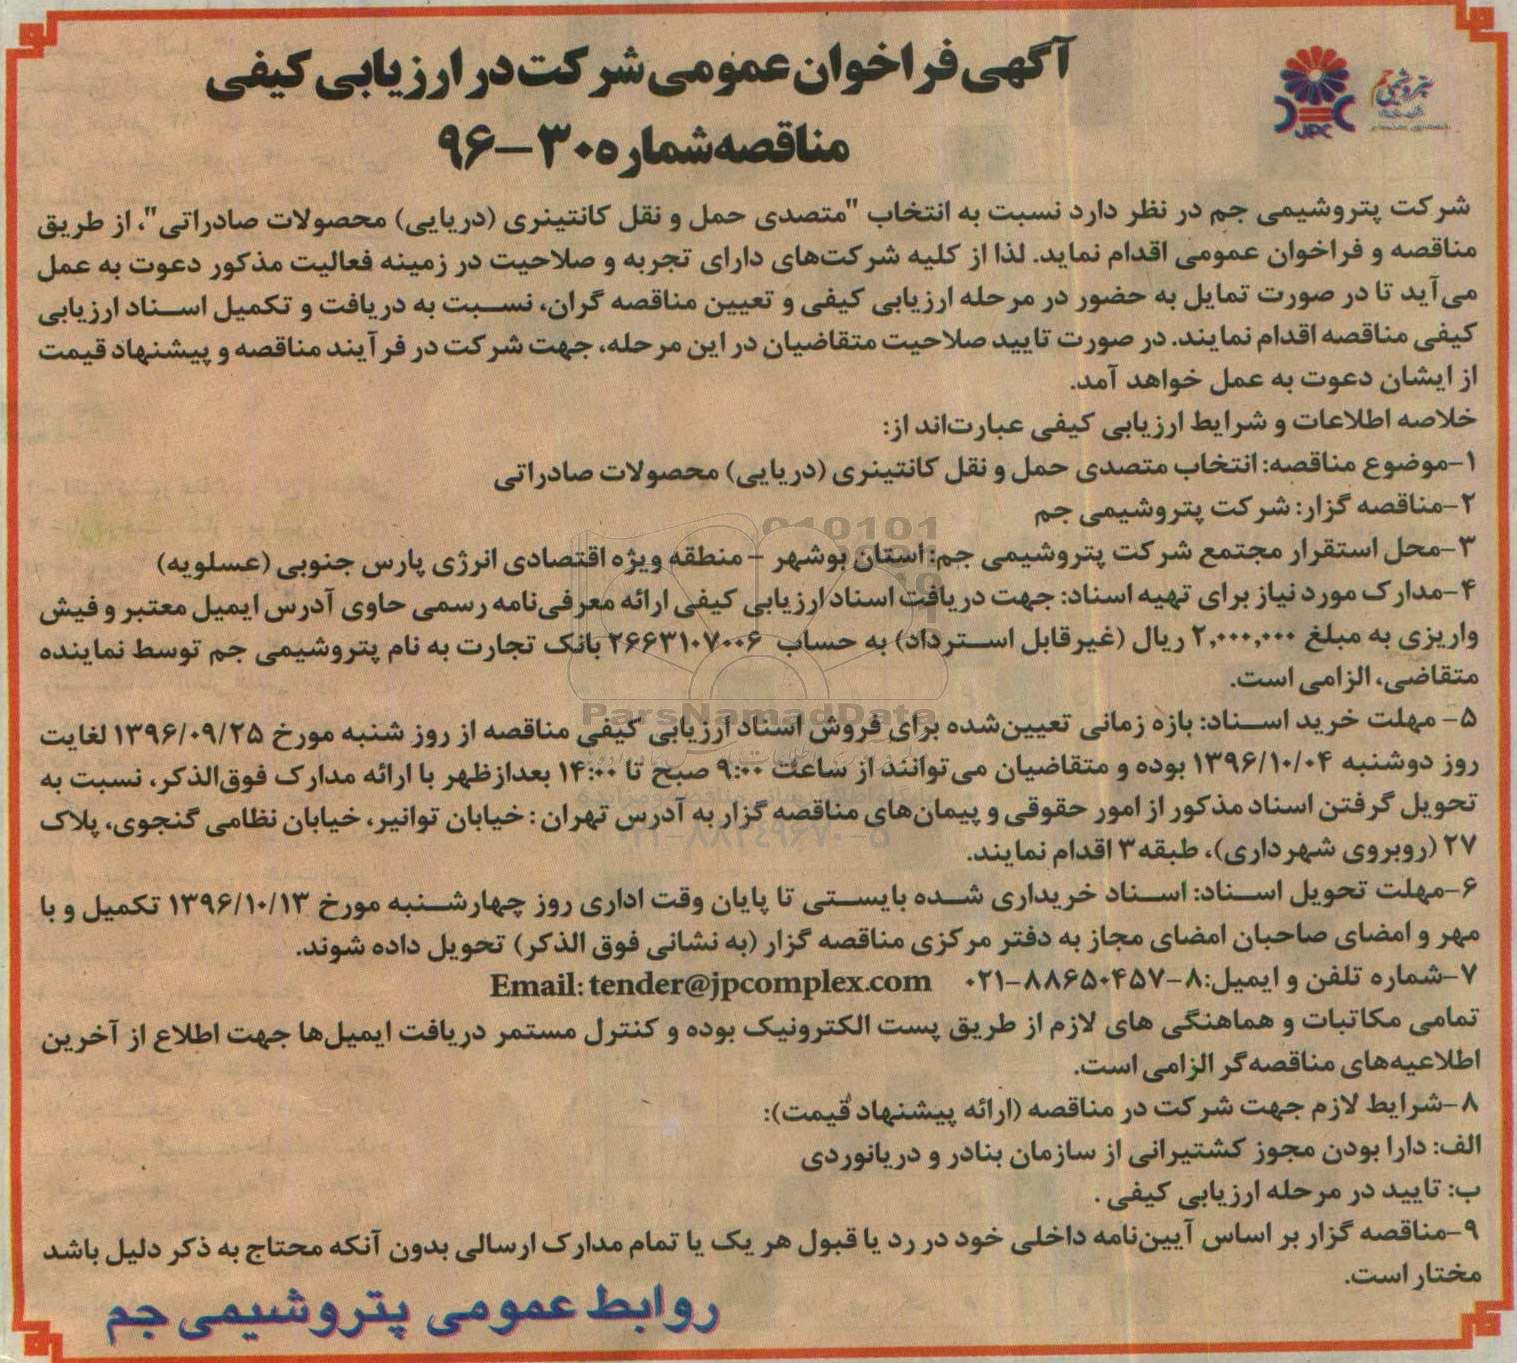 آگهی فراخوان عمومی شرکت در ارزیابی کیفی
مناقصه شماره ۳۰-۹۶
پتروشیمی جم
JPC
شرکت پتروشیمی جم در نظر دارد نسبت به انتخاب "متصدی حمل و نقل کانتینری (دریایی) محصولات صادراتی"، از طریق
مناقصه و فراخوان عمومی اقدام نماید. لذا از کلیه شرکت‌های دارای تجربه و صلاحیت در زمینه فعالیت مذکور دعوت به عمل
می‌آید تا در صورت تمایل به حضور در مرحله ارزیابی کیفی و تعیین مناقصه گران، نسبت به دریافت و تکمیل اسناد ارزیابی
کیفی مناقصه اقدام نمایند. در صورت تایید صلاحیت متقاضیان در این مرحله، جهت شرکت در فرآیند مناقصه و پیشنهاد قیمت
از ایشان دعوت به عمل خواهد آمد.
خلاصه اطلاعات و شرایط ارزیابی کیفی عبارت‌اند از:
۱-موضوع مناقصه: انتخاب متصدی حمل و نقل کانتینری (دریایی) محصولات صادراتی
۲-مناقصه گزار: شرکت پتروشیمی جم
۳-محل استقرار مجتمع شرکت پتروشیمی جم: استان بوشهر - منطقه ویژه اقتصادی انرژی پارس جنوبی (عسلویه)
۴-مدارک مورد نیاز برای تهیه اسناد: جهت دریافت اسناد ارزیابی کیفی ارائه معرفی‌نامه رسمی حاوی آدرس ایمیل معتبر و فیش
واریزی به مبلغ ۲,۰۰۰,۰۰۰ ریال (غیرقابل استرداد) به حساب ۲۶۶۳۱۰۷۰۰۶ بانک تجارت به نام پتروشیمی جم توسط نماینده
متقاضی، الزامی است.
۵- مهلت خرید اسناد: بازه زمانی تعیین‌شده برای فروش اسناد ارزیابی کیفی مناقصه از روز شنبه مورخ ۱۳۹۶/۰۹/۲۵ لغایت
روز دوشنبه ۱۳۹۶/۱۰/۰۴ بوده و متقاضیان می‌توانند از ساعت ۹:۰۰ صبح تا ۱۴:۰۰ بعدازظهر با ارائه مدارک فوق‌الذکر، نسبت به
تحویل گرفتن اسناد مذکور از امور حقوقی و پیمان‌های مناقصه گزار به آدرس تهران : خیابان توانیر، خیابان نظامی گنجوی، پلاک
۲۷ (روبروی شهرداری)، طبقه ۳ اقدام نمایند.
۶-مهلت تحویل اسناد: اسناد خریداری شده بایستی تا پایان وقت اداری روز چهارشنبه مورخ ۱۳۹۶/۱۰/۱۳ تکمیل و با
مهر و امضای صاحبان امضای مجاز به دفتر مرکزی مناقصه گزار (به نشانی فوق الذکر) تحویل داده شوند.
۷-شماره تلفن و ایمیل: ۸-۸۸۶۵۰۴۵۷-۰۲۱ Email: tender@jpcomplex.com
تمامی مکاتبات و هماهنگی های لازم از طریق پست الکترونیک بوده و کنترل مستمر دریافت ایمیل‌ها جهت اطلاع از آخرین
اطلاعیه‌های مناقصه‌گر الزامی است.
۸-شرایط لازم جهت شرکت در مناقصه (ارائه پیشنهاد قیمت):
الف: دارا بودن مجوز کشتیرانی از سازمان بنادر و دریانوردی
ب: تایید در مرحله ارزیابی کیفی .
۹-مناقصه گزار بر اساس آیین‌نامه داخلی خود در رد یا قبول هر یک یا تمام مدارک ارسالی بدون آنکه محتاج به ذکر دلیل باشد
مختار است.
روابط عمومی پتروشیمی جم
ParsNamadData